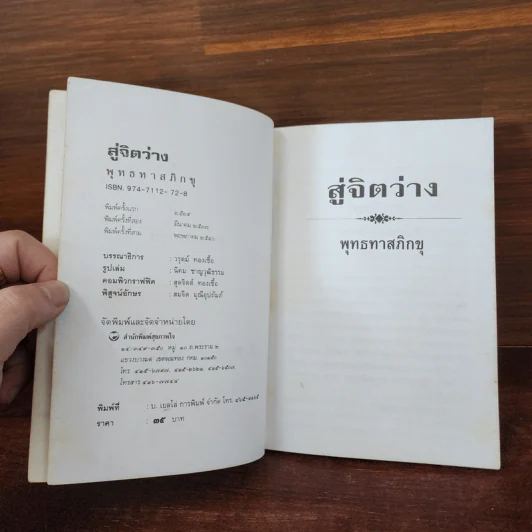 สู่จิตว่าง
พุทธทาสภิกขุ
ISBN. 974-7112-72-8
พิมพ์ครั้งแรก
พิมพ์ครั้งที่สอง : มีนาคม
พิมพ์ครั้งที่สาม : พฤษภาคม
บรรณาธิการ : วรุตม์ ทองเชื้อ
รูปเล่ม : นิคม ชาญวุฒิธรรม
คอมพิวกราฟฟิค : สุดจิตต์ ทองเชื้อ
พิสูจน์อักษร : สมจิต
จัดพิมพ์และจัดจำหน่ายโดย
สำนักพิมพ์สุขภาพใจ
หมู่ ๑๐ ถ.พระราม ๒
แขวงบางมด เขตจอมทอง กทม.
โทร.
โทรสาร
พิมพ์ที่ : การพิมพ์ จำกัด โทร.
ราคา : ๓๕ บาท
สู่จิตว่าง
พุทธทาสภิกขุ